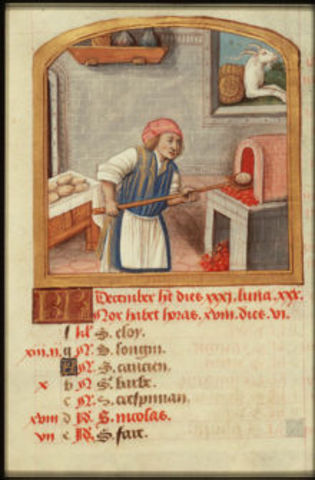 KL December ht dies xxxi. luna. xxx.
Nox habet horas. xviii. dies. vi.
f kl' S. eloy.
xiii. n. g N. S. longin.
A N. S. cancien.
x b N S. barbe.
c N. S. crespinian.
xviii d N. S. nicolas.
vii e N. S. fare.